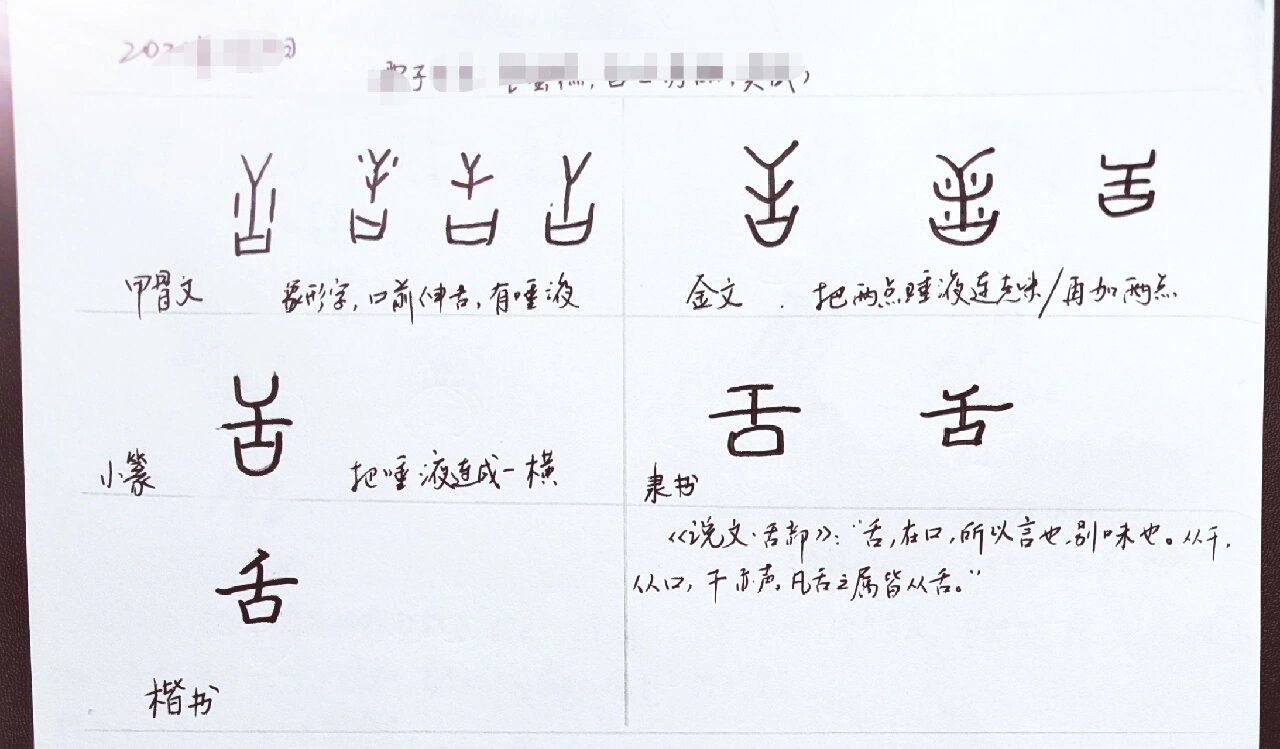 甲骨文 象形字,口前伸舌,有唾液
金文 . 把两点唾液连起来/再加两点
舌
小篆 把唾液连成一横
舌 舌
隶书
《说文·舌部》:“舌,在口,所以言也,别味也。从干,
从口,干亦声,凡舌之属皆从舌。”
舌
楷书